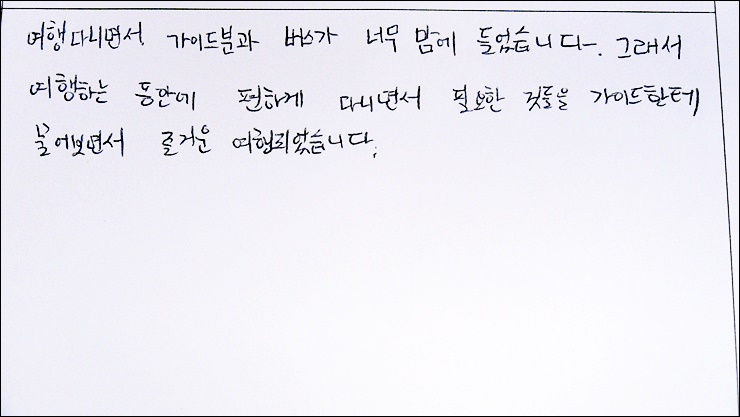 여행다니면서 가이드분과 버스가 너무 맘에 들었습니다. 그래서
여행하는 동안에 편하게 다니면서 필요한 것들을 가이드한테
물어보면서 즐거운 여행되었습니다.